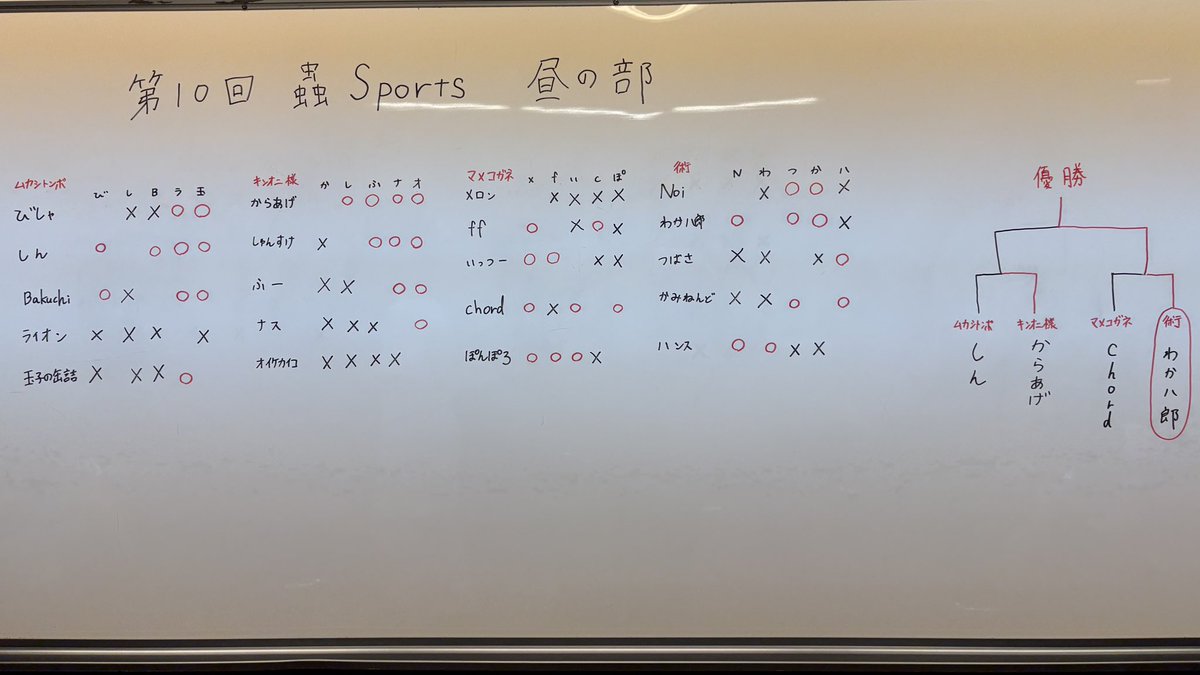 第10回 蟲Sports 昼の部
ムカシトンボ び し B ラ 玉
びしゃ × × ○ ○
しん ○ ○ ○ ○
Bakuchi ○ × ○ ○
ライオン × × × ×
玉子の缶詰 × × × ○
キンオニ様 か し ふ ナ オ
からあげ ○ ○ ○ ○
しゃんすけ × ○ ○ ○
ふー × × ○ ○
ナス × × × ○
オイケカイコ × × × ×
マメコガネ × f い c ぽ
メロン × × × ×
ff ○ × ○ ×
いっつー ○ ○ × ×
chord ○ × ○ ○
ぽんぽろ ○ ○ ○ ×
術 N わ つ か ハ
Noi × ○ ○ ×
わか八郎 ○ ○ ○ ×
つばさ × × × ○
かみねんど × × ○ ○
ハンス ○ ○ × ×
優勝
ムカシトンボ
しん
キンオニ様
からあげ
マメコガネ
Chord
術
わか八郎